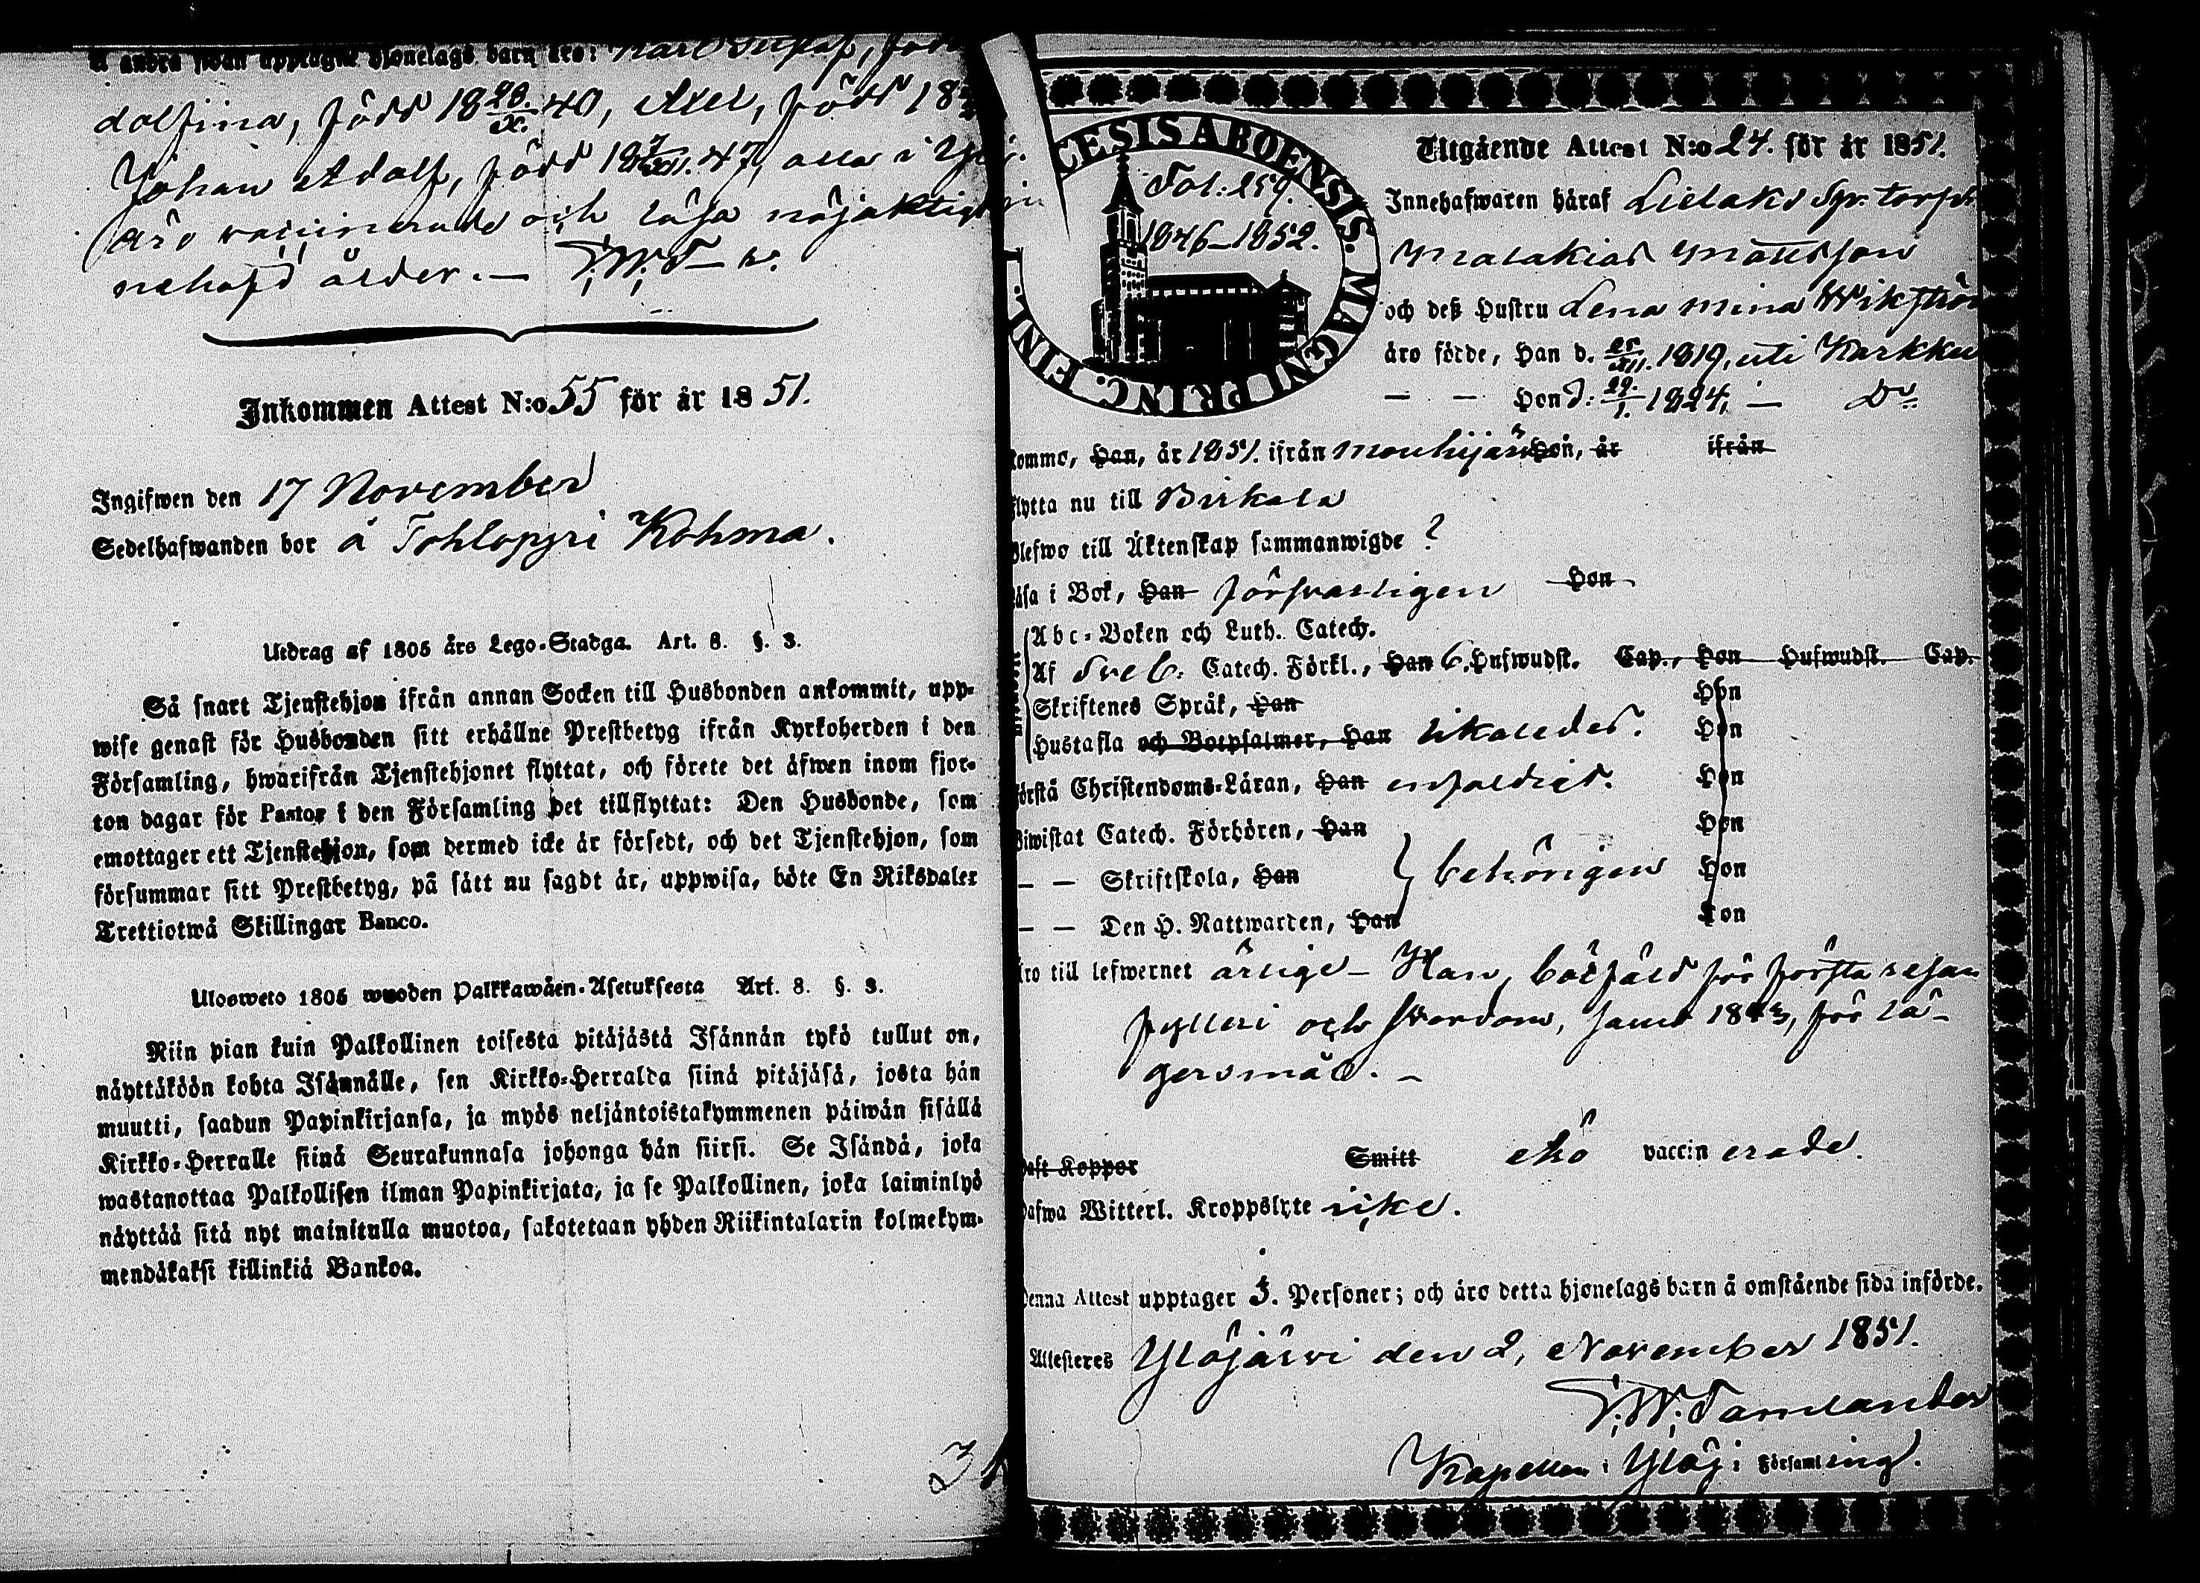 å andra sidan upptagne hjonelags barn äro:
dolfina, född 18 20/X. 40, Axel, född 18
Johan Adolf, född 18 7/XI. 47, alla i Ylöj.
äro vaccinerade och läsa nöjaktigt
nehafd ålder. — T. W. T—r.
Inkommen Attest N:o 55 för år 1851.
Ingifwen den 17 November
Sedelhafwanden bor å Tohlopyri Kohma.
Utdrag af 1805 års Lego-Stadga. Art. 8. §. 3.
Så snart Tjenstehjon ifrån annan Socken till Husbonden ankommit, upp-
wise genast för Husbonden sitt erhållne Prestbetyg ifrån Kyrkoherden i den
Församling, hwarifrån Tjenstehjonet flyttat, och förete det äfwen inom fjor-
ton dagar för Pastor i den Församling det tillflyttat: Den Husbonde, som
emottager ett Tjenstehjon, som dermed icke är försedt, och det Tjenstehjon, som
försummar sitt Prestbetyg, på sätt nu sagdt är, uppwisa, böte En Riksdaler
Trettiotwå Skillingar Banco.
Ulosweto 1805 wuoden Palkkawäen-Asetuksesta Art. 8. §. 3.
Niin pian kuin Palkollinen toisesta pitäjästä Isännän tykö tullut on,
näyttäköön kohta Isännälle, sen Kirkko-Herralda siinä pitäjäsä, josta hän
muutti, saadun Papinkirjansa, ja myös neljäntoistakymmenen päiwän sisällä
Kirkko-Herralle siinä Seurakunnasa johonga hän siirsi. Se Isändä, joka
wastanottaa Palkollisen ilman Papinkirjata, ja se Palkollinen, joka laiminlyö
näyttää sitä nyt mainitulla muotoa, sakotetaan yhden Riikintalarin kolmekym-
mendäkaksi killinkiä Bankoa.
CESIS ABOENSIS. MAGNI PRINC. FINL.
Fol: 259.
1846–1852.
Utgående Attest N:o 24. för år 1851.
Innehafwaren häraf Lielaks Spr. torp
Malakias Mattsson
och deß Hustru Lena Mina Wikström
äro födde, Han d. /XII. 1819, uti Karkku
— — Hon d: 29/1. 1824, — Do
komme, Han, år 1851. ifrån Mouhijärvi Hon, år ifrån
flytta nu till Birkala
Blefwo till Äktenskap sammanwigde ?
Läsa i Bok, Han försvarligen Hon
Abc-Boken och Luth. Catech.
Af Sveb. Catech. Förkl., Han 6. Hufwudst. Cap., Hon Hufwudst. Cap.
Skriftenes Språk, Han Hon
Hustafla och Botpsalmer, Han likaledes. Hon
Förstå Christendoms-Läran, Han enfaldigt. Hon
Biwistat Catech. Förhören, Han Hon
— — Skriftskola, Han behörigen Hon
— — Den H. Nattwarden, Han Hon
Äro till lefwernet ärlige – Han, botfäld för första resan
fylleri och svordom, samt 1843, för lä-
gersmål. —
Haft Koppor Smitt äro vaccinerade.
Hafwa Witterl. Kroppslyte icke.
Denna Attest upptager 5. Personer; och äro detta hjonelags barn å omstående sida införde.
Attesteres Ylöjärvi den 2, November 1851.
T. W. Tamlander
Kapellan i Ylöj: Församling.